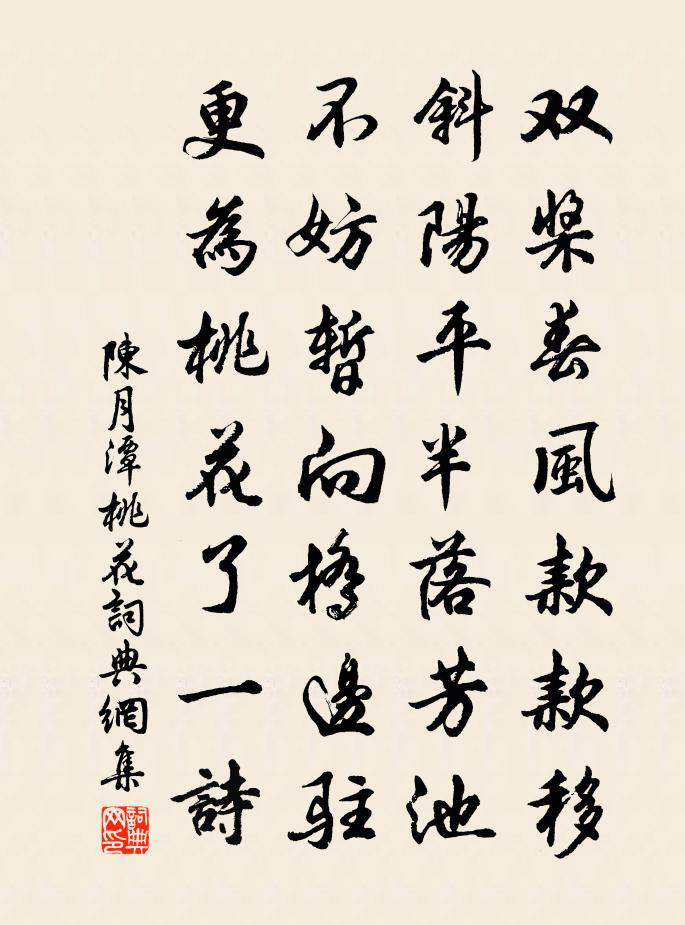 双桨春風款款移
斜陽平半落芳池
不妨暫向橋邊駐
更為桃花了一詩
陳月潭桃花詞典網集
詞典网印